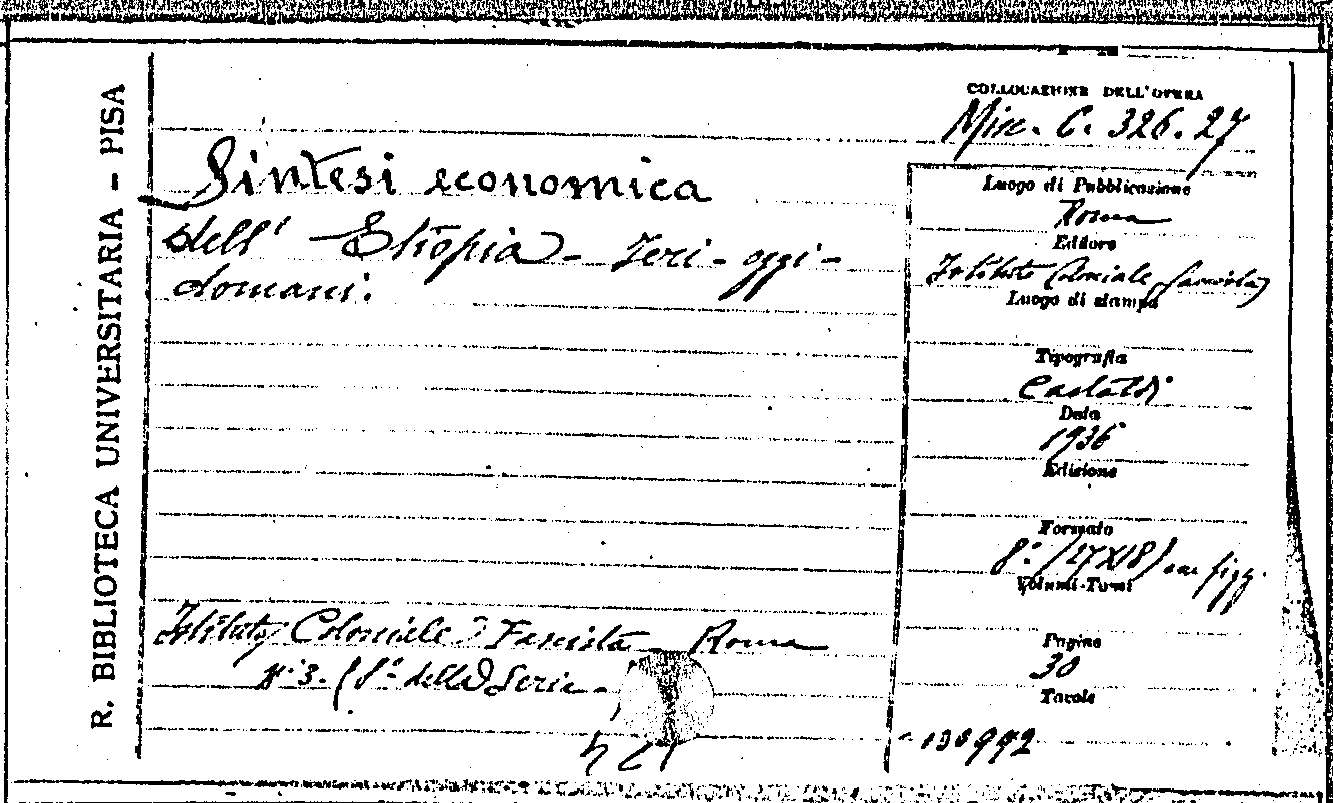 R. BIBLIOTECA UNIVERSITARIA - PISA
COLLOCAZIONE DELL'OPERA
Misc. C. 326.27
Sintesi economica
dell' Etiopia - Ieri - oggi -
domani.
Luogo di Pubblicazione
Roma
Editore
Istituto Coloniale Fascista
Luogo di stampa
Tipografia
Castaldi
Data
1936
Edizione
Formato
8° (27x18) con figg.
Volumi-Tomi
Pagine
30
Tavole
Istituto Coloniale Fascista - Roma
N. 3. (8° della Serie -